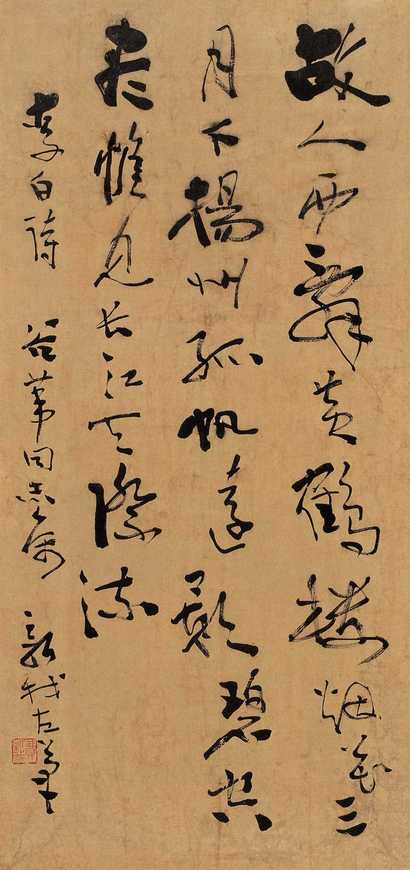 故人西辭黃鶴樓烟花三
月下揚州孤帆遠影碧空
尽惟見長江天際流
李白詩 谷葦同志属 新我左筆